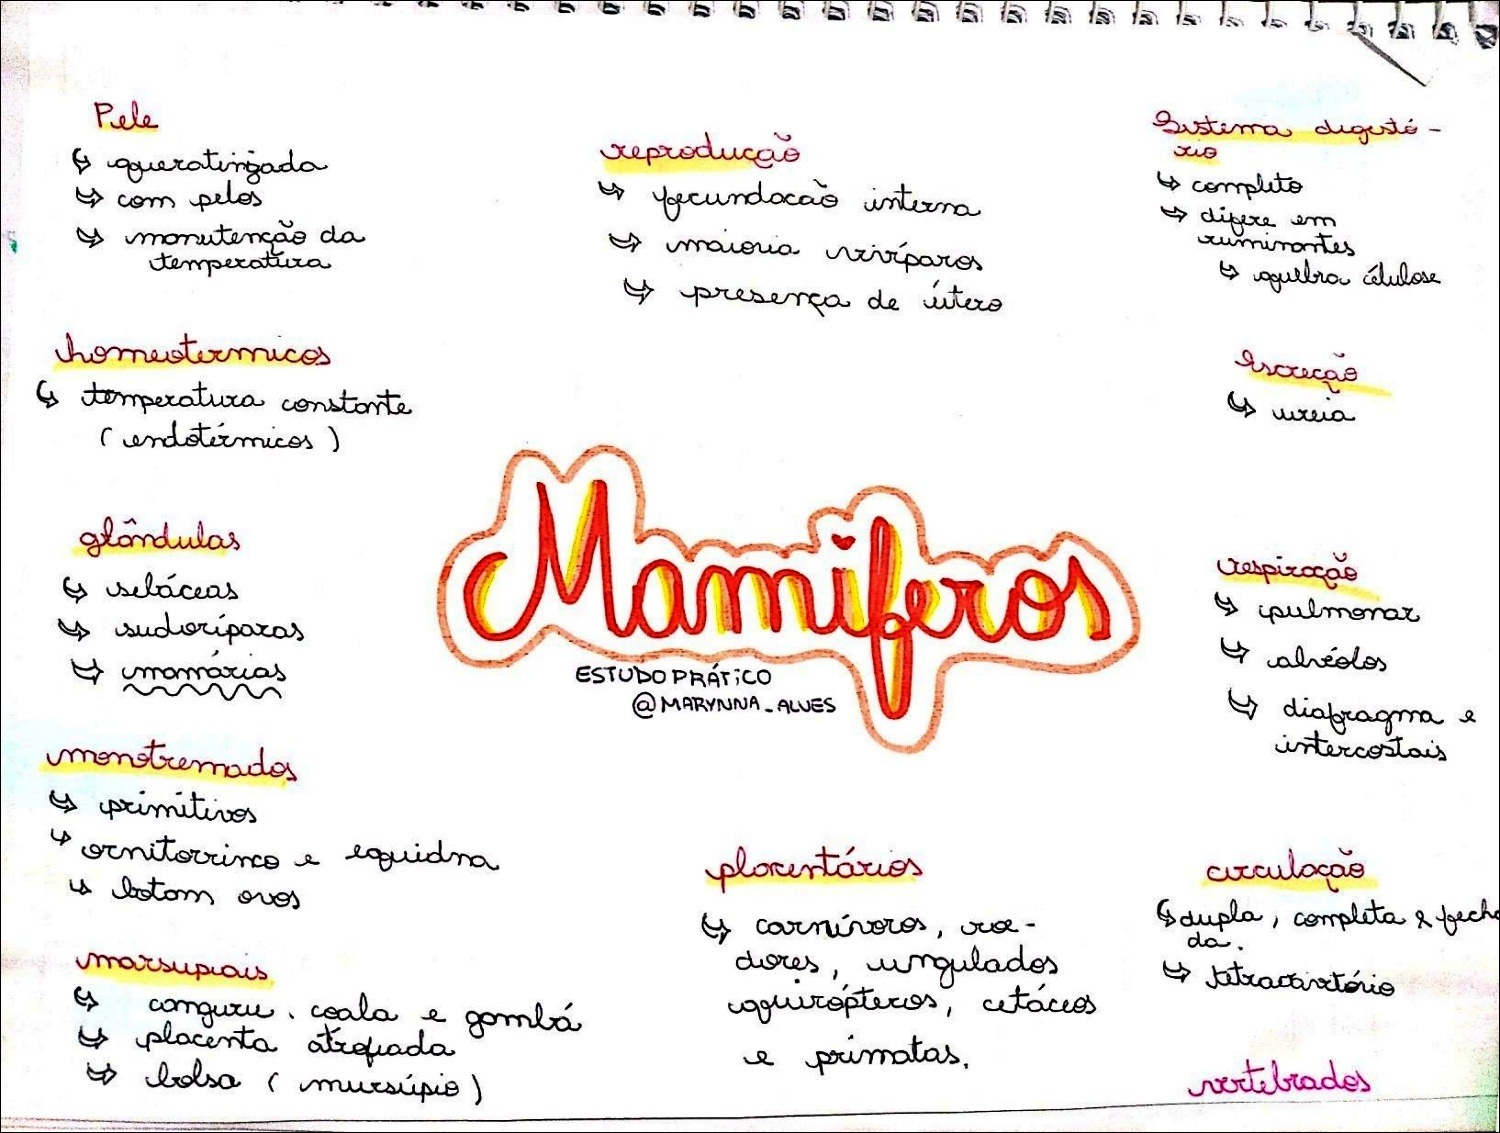 Pele
queratinizada
com pelos
manutenção da
temperatura
homeotermicos
temperatura constante
(endotérmicos)
glândulas
sebáceas
sudoríparas
mamárias
monotremados
primitivos
ornitorrinco e equidna
botam ovos
marsupiais
canguru, coala e gambá
placenta atrofiada
bolsa (mursúpio)
reprodução
fecundacão interna
maioria vivíparos
presença de útero
Mamiferos
ESTUDO PRÁTICO
@MARYNNA_ALVES
placentários
carnívoros, roe-
dores, ungulados
quirópteros, cetáceos
e primatas.
Sistema digestó-
rio
completo
difere em
ruminantes
quebra célulose
Escreção
ureia
respiração
pulmonar
alvéolos
diafragma e
intercostais
circulação
dupla, completa & fecha
da.
vertebrados